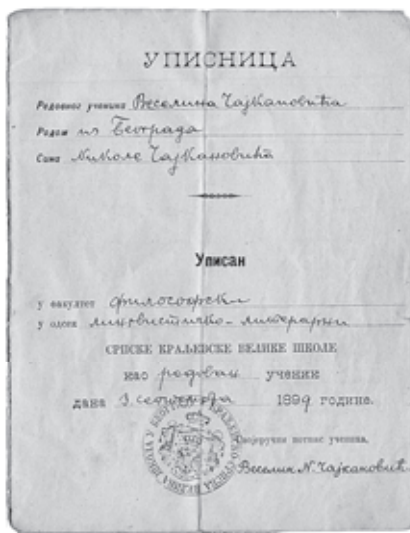 УПИСНИЦА
Редовног ученика Веселина Чајкановића
Родом из Београда
Сина Николе Чајкановића
Уписан
у факултет филозофски
у одсек лингвистичко-литерарни
СРПСКЕ КРАЉЕВСКЕ ВЕЛИКЕ ШКОЛЕ
као редован ученик
дана 3. септембра 1899 године.
Својеручни потпис ученика,
Веселин Н. Чајкановић